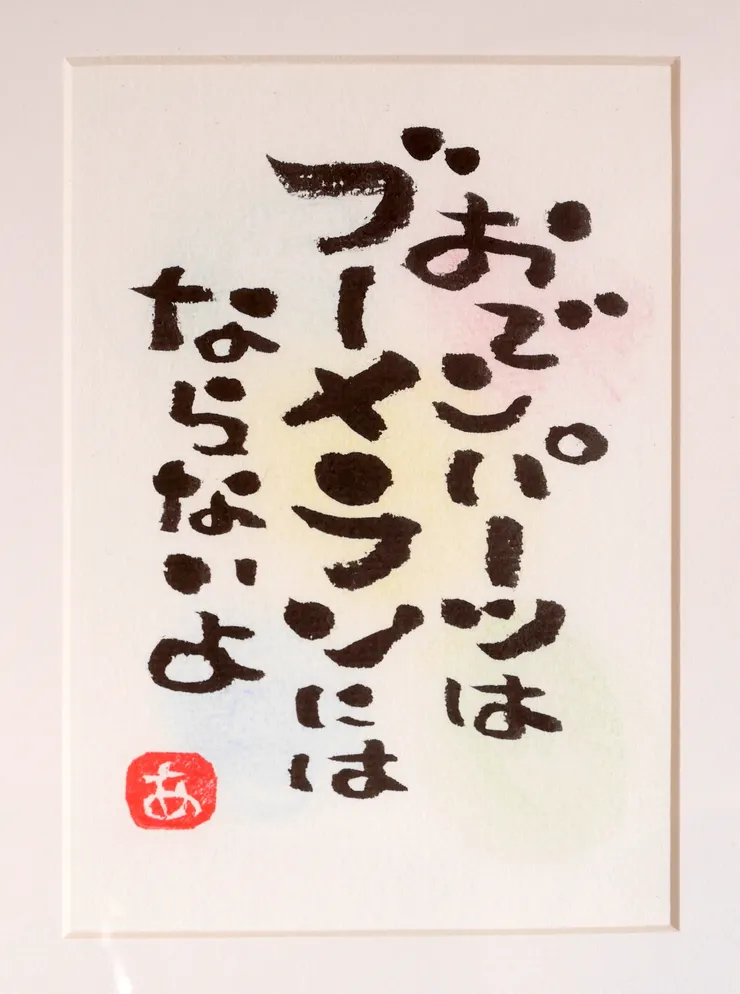 おでこパーツは
ブーメランには
ならないよ
あ